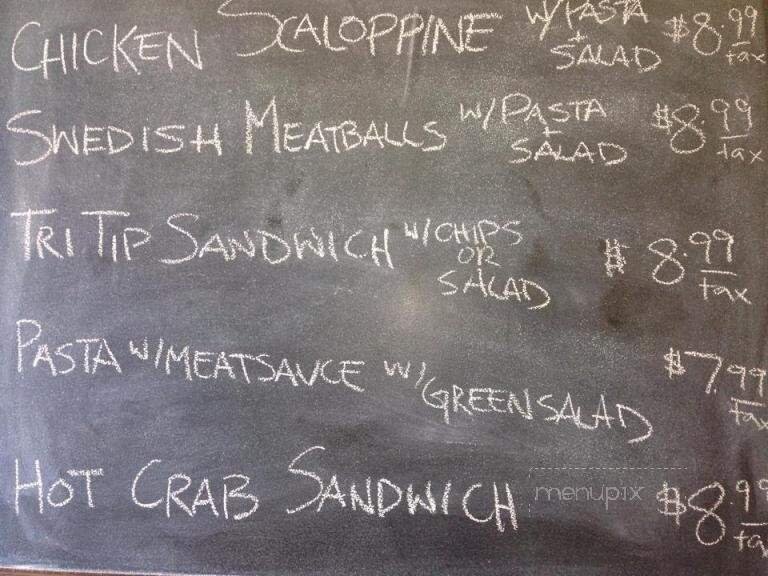 CHICKEN SCALOPPINE W/PASTA + SALAD $8.99 tax
SWEDISH MEATBALLS W/PASTA + SALAD $8.99 tax
TRI TIP SANDWICH W/CHIPS OR SALAD $8.99 tax
PASTA W/MEATSAUCE W/ GREEN SALAD $7.99 tax
HOT CRAB SANDWICH $8.99 ta
menupix